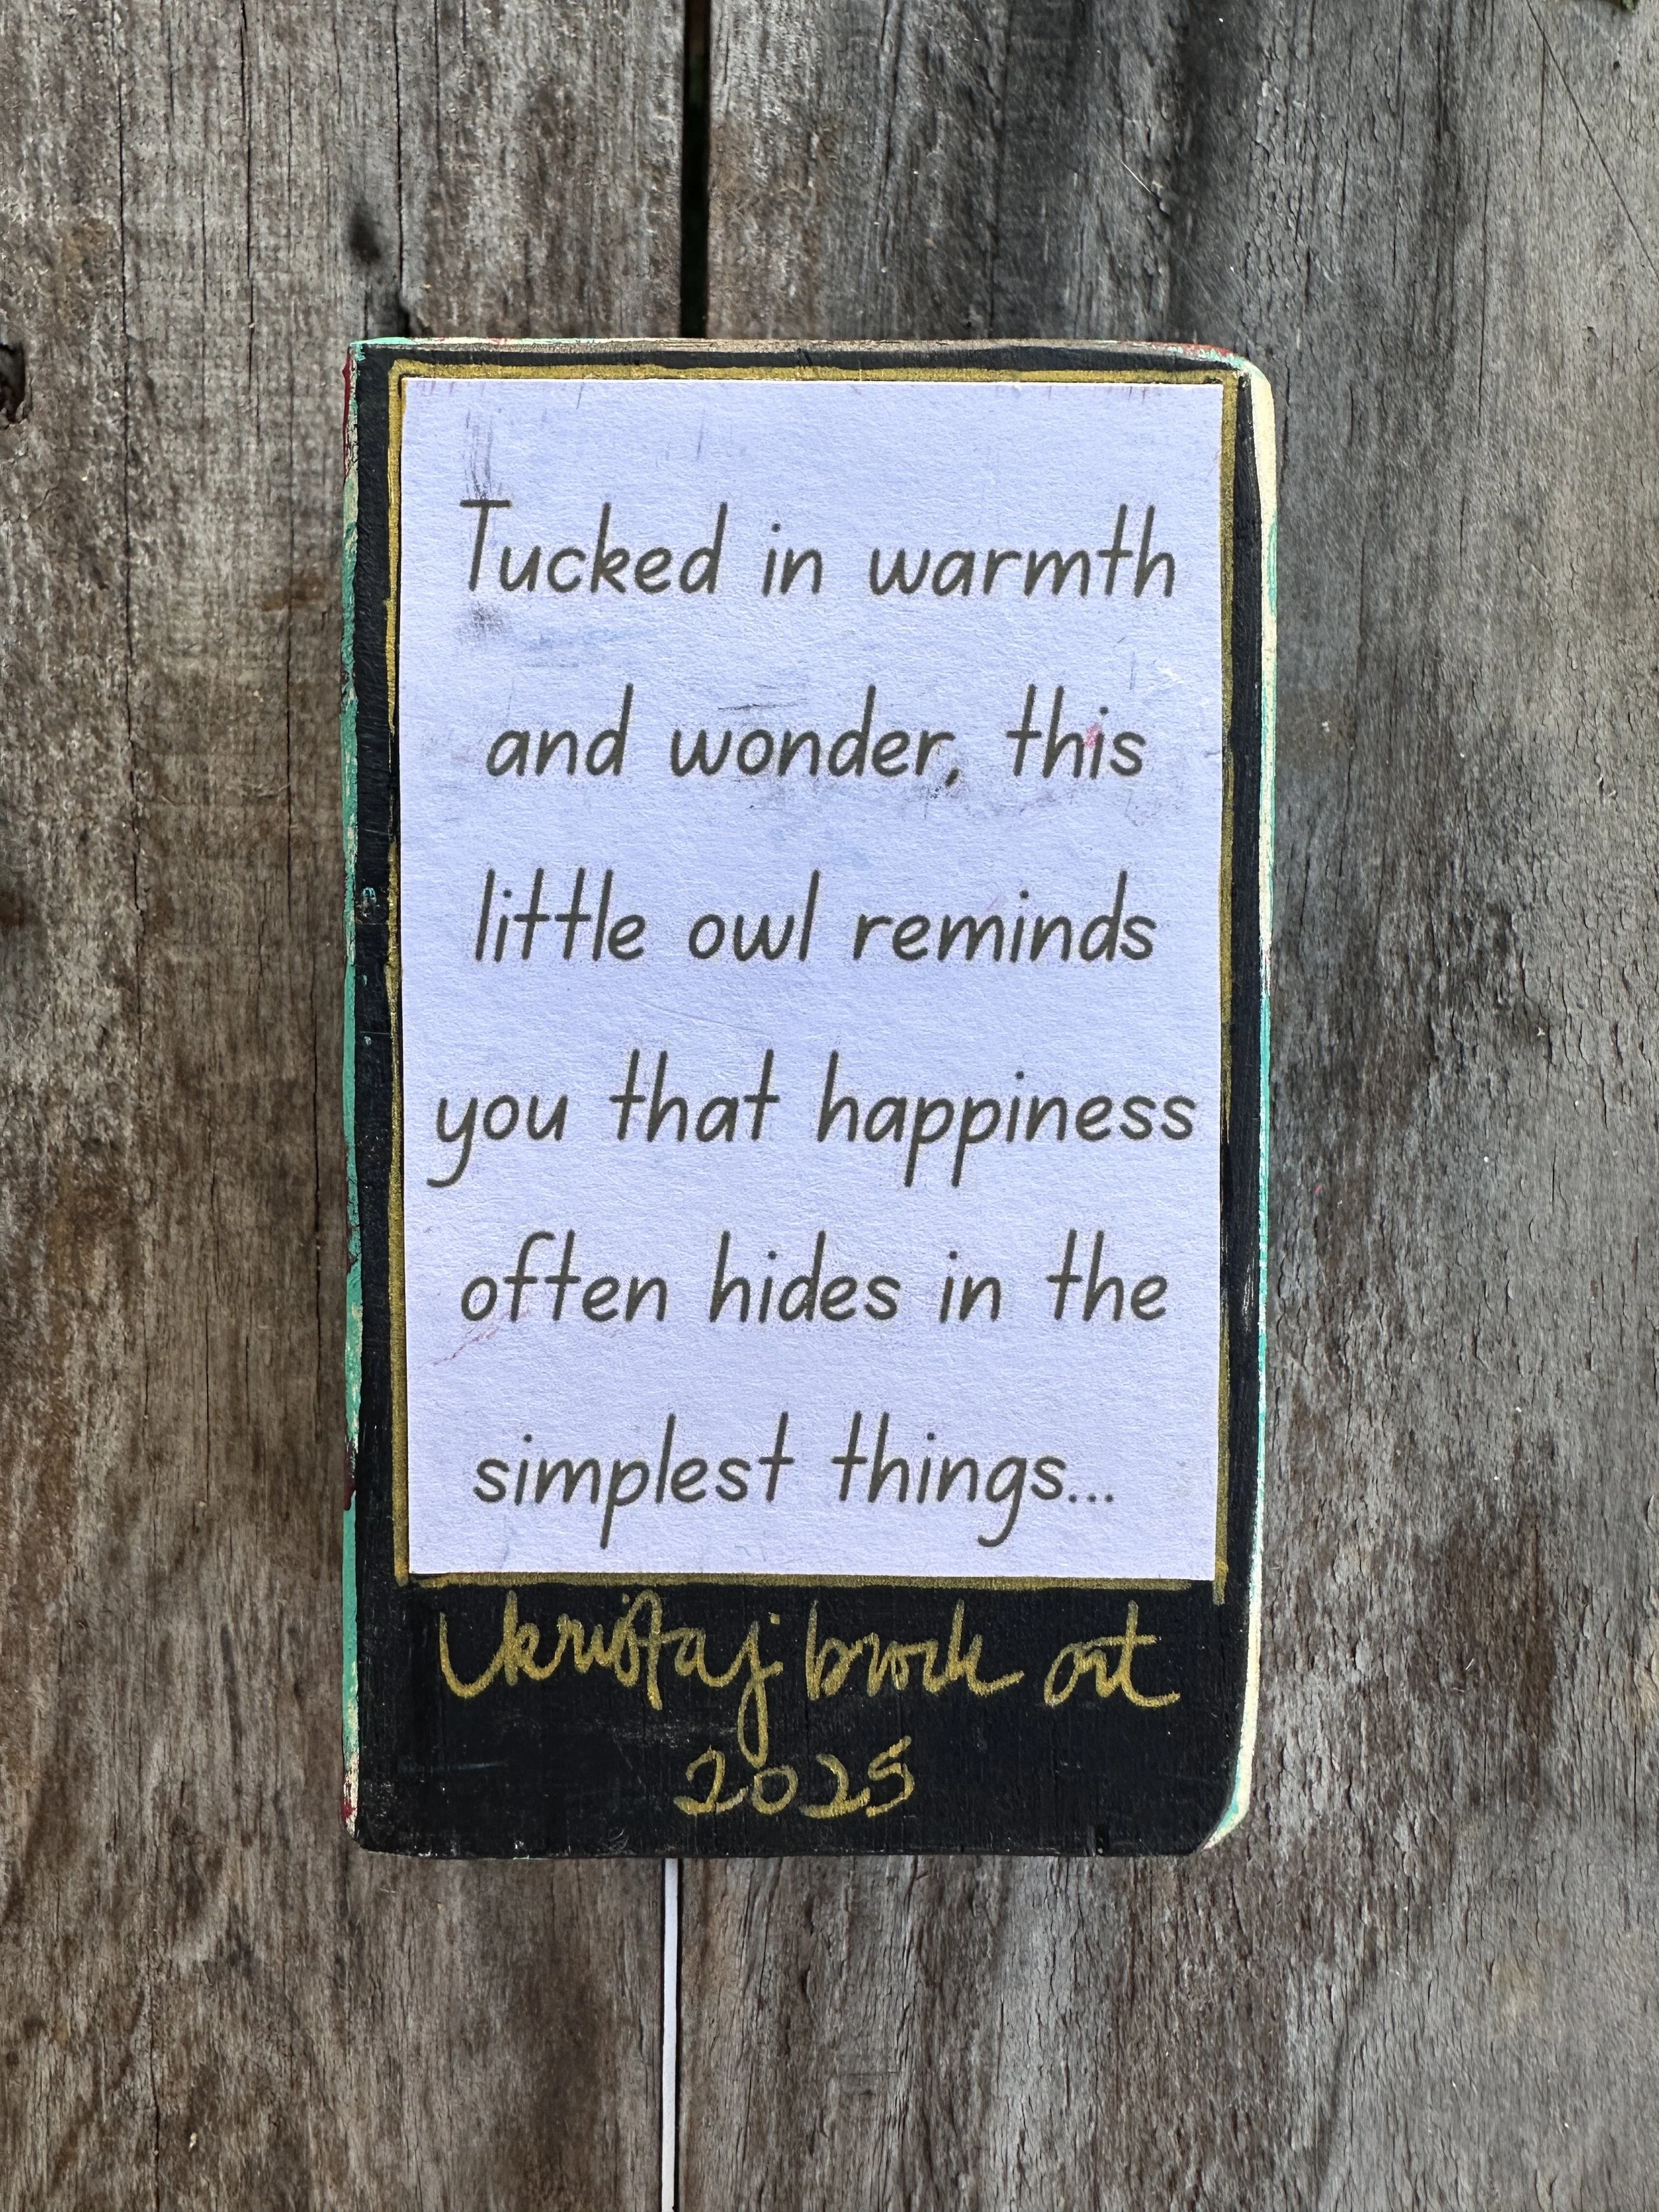 Tucked in warmth
and wonder, this
little owl reminds
you that happiness
often hides in the
simplest things...
art
2025